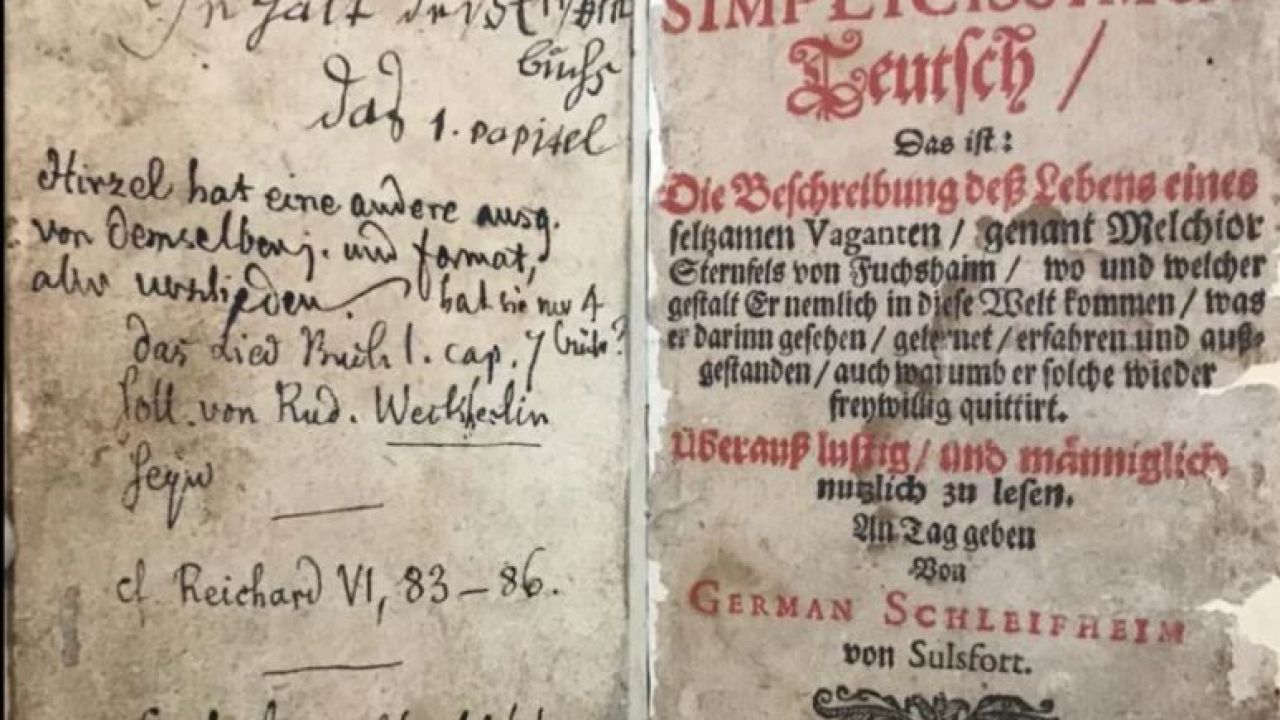 Inhalt des ersten
buchs
das 1. capitel
Hirzel hat eine andere ausg.
von demselben j. und format,
aber verschieden.
hat sie nur 4
das Lied Buch 1. cap. 7
Soll von Rud. Weckherlin
seyn
cf. Reichard VI, 83–86.
Teutsch /
Das ist:
Die Beschreibung deß Lebens eines
seltzamen Vaganten / genant Melchior
Sternfels von Fuchshaim / wo und welcher
gestalt Er nemlich in diese Welt kommen / was
er darinn gesehen / gelernet / erfahren und auß-
gestanden / auch warumb er solche wieder
freywillig quittirt.
Überauß lustig / und männiglich
nutzlich zu lesen.
An Tag geben
Von
GERMAN SCHLEIFHEIM
von Sulsfort.